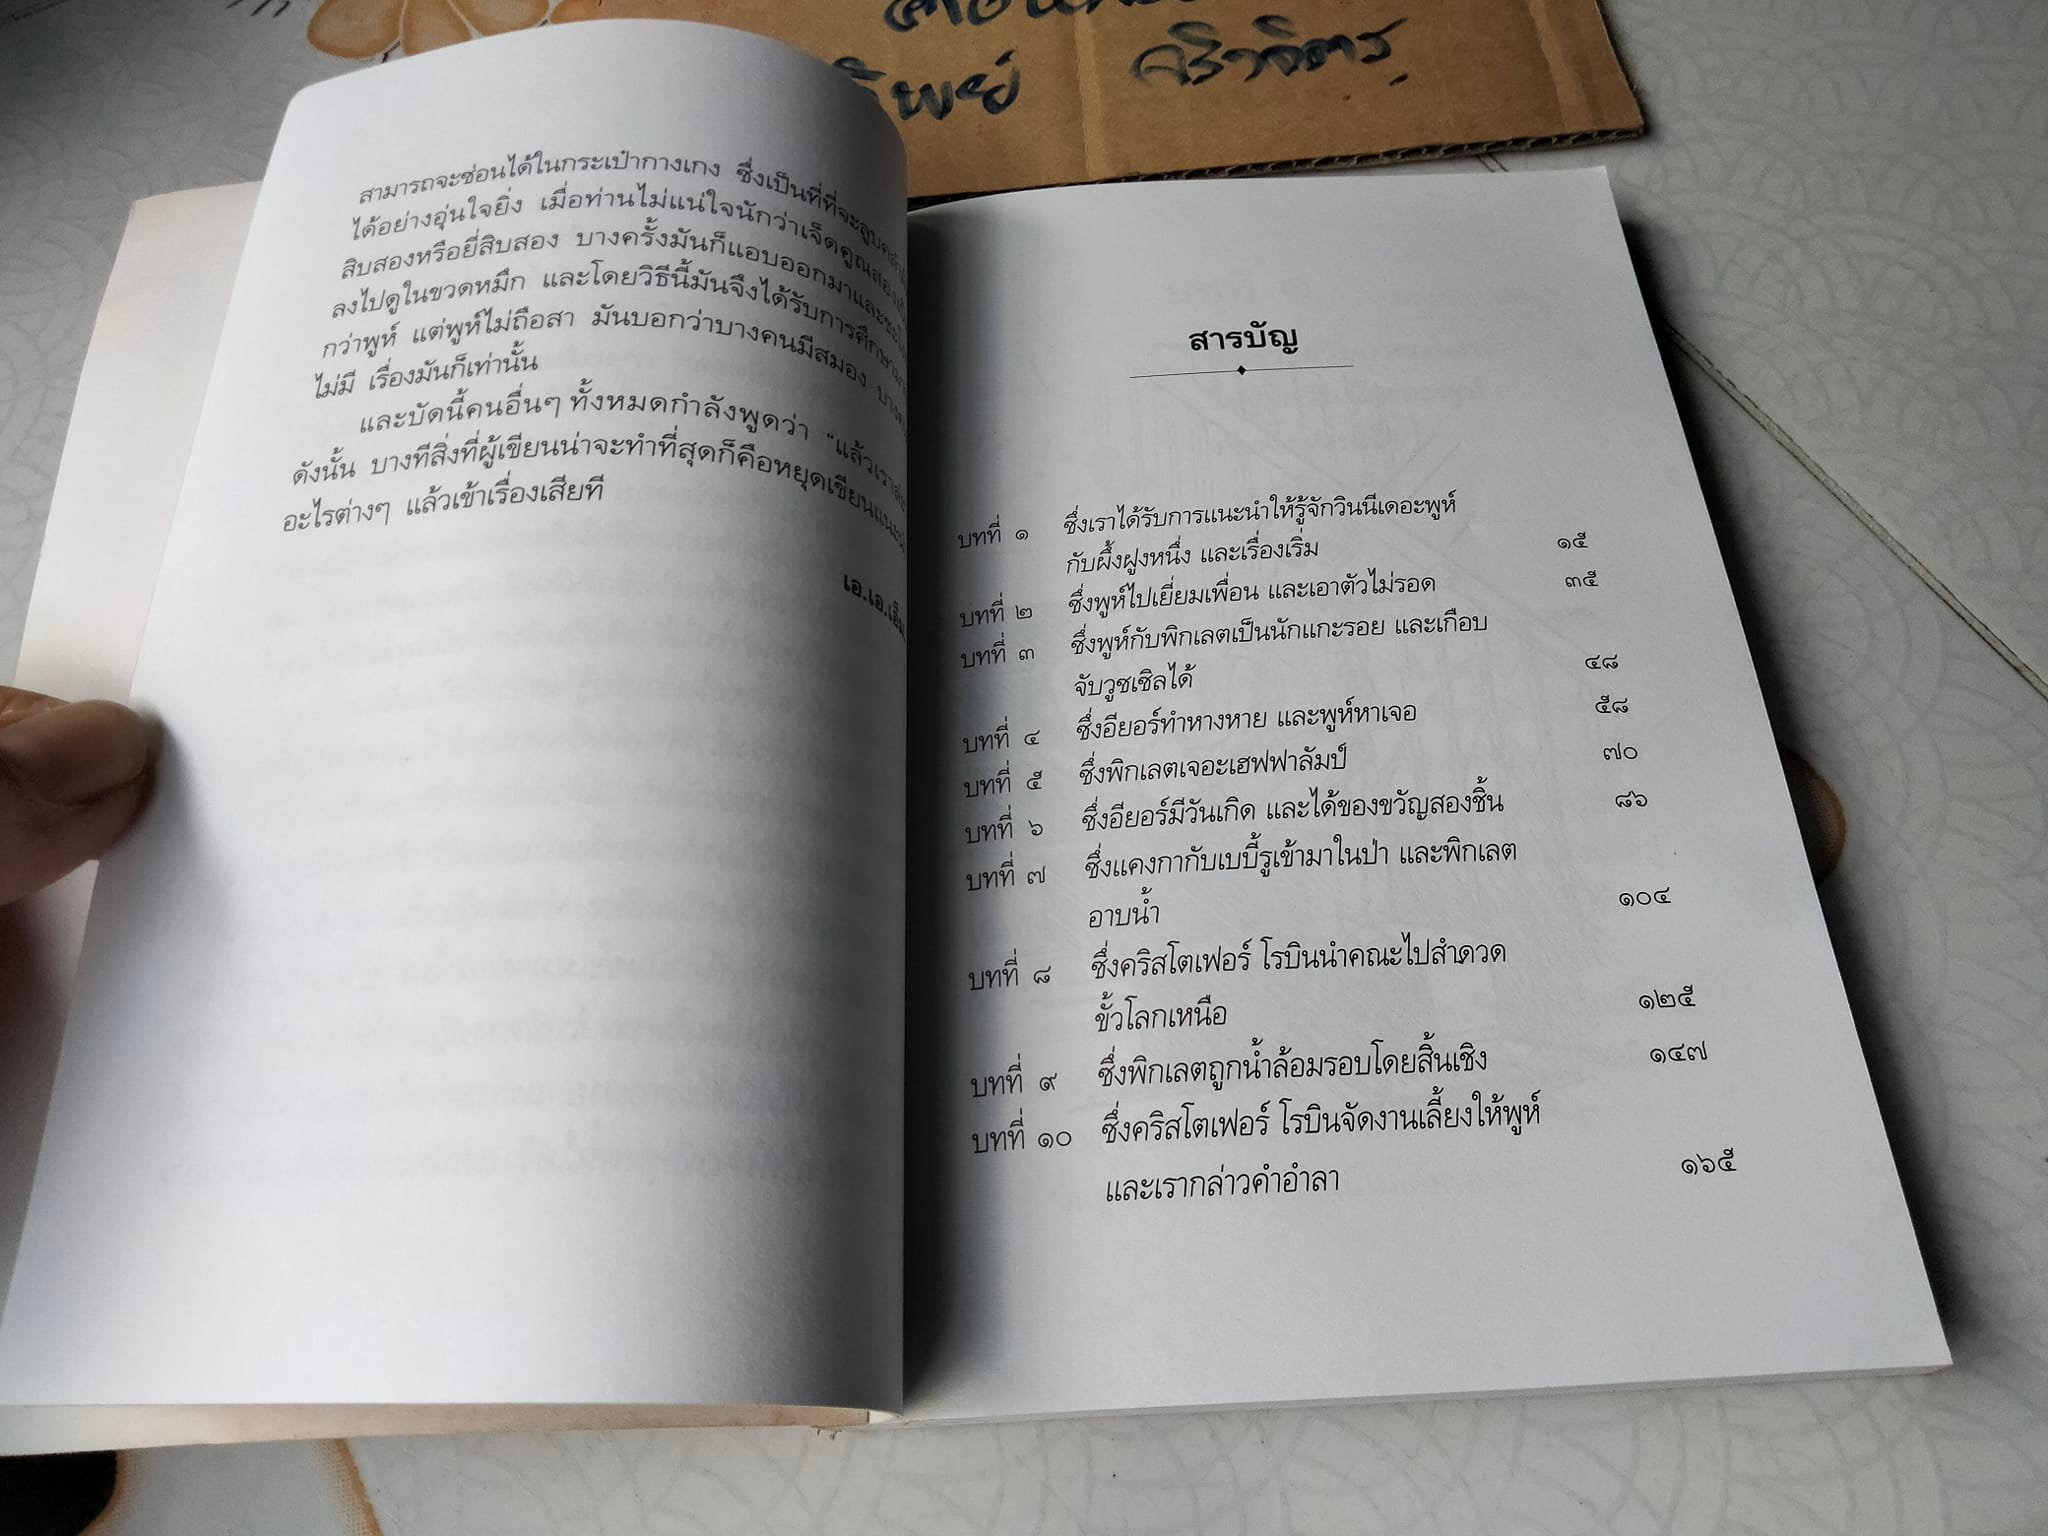 ทิพย์ จริงจิตร
สามารถจะซ่อนได้ในกระเป๋ากางเกง ซึ่งเป็นที่ที่จะลูบคลำ
ได้อย่างอุ่นใจยิ่ง เมื่อท่านไม่แน่ใจนักว่าเจ็ดคูณสองเป็น
สิบสองหรือยี่สิบสอง บางครั้งมันก็แอบออกมาและชะโงก
ลงไปดูในขวดหมึก และโดยวิธีนี้มันจึงได้รับการศึกษามาก
กว่าพูห์ แต่พูห์ไม่ถือสา มันบอกว่าบางคนมีสมอง บางคน
ไม่มี เรื่องมันก็เท่านั้น
และบัดนี้คนอื่นๆ ทั้งหมดกำลังพูดว่า “แล้วเราล่ะ
ดังนั้น บางทีสิ่งที่ผู้เขียนน่าจะทำที่สุดก็คือหยุดเขียนแนะนำ
อะไรต่างๆ แล้วเข้าเรื่องเสียที
เอ.เอ.เอ็ม
สารบัญ
บทที่ ๑ ซึ่งเราได้รับการแนะนำให้รู้จักวินนีเดอะพูห์
กับผึ้งฝูงหนึ่ง และเรื่องเริ่ม ๑๕
บทที่ ๒ ซึ่งพูห์ไปเยี่ยมเพื่อน และเอาตัวไม่รอด ๓๕
บทที่ ๓ ซึ่งพูห์กับพิกเลตเป็นนักแกะรอย และเกือบ
จับวูซเซิลได้ ๔๘
บทที่ ๔ ซึ่งอียอร์ทำหางหาย และพูห์หาเจอ ๕๘
บทที่ ๕ ซึ่งพิกเลตเจอะเฮฟฟาลัมป์ ๗๐
บทที่ ๖ ซึ่งอียอร์มีวันเกิด และได้ของขวัญสองชิ้น ๘๖
บทที่ ๗ ซึ่งแคงกากับเบบี้รูเข้ามาในป่า และพิกเลต
อาบน้ำ ๑๐๔
บทที่ ๘ ซึ่งคริสโตเฟอร์ โรบินนำคณะไปสำดวด
ขั้วโลกเหนือ ๑๒๕
บทที่ ๙ ซึ่งพิกเลตถูกน้ำล้อมรอบโดยสิ้นเชิง ๑๔๗
บทที่ ๑๐ ซึ่งคริสโตเฟอร์ โรบินจัดงานเลี้ยงให้พูห์
และเรากล่าวคำอำลา ๑๖๕